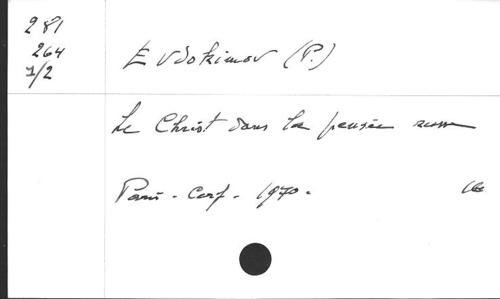 281
264
1/2
Evdokimov (P.)
Le Christ dans la pensée russe
Paris - Cerf - 1970 -